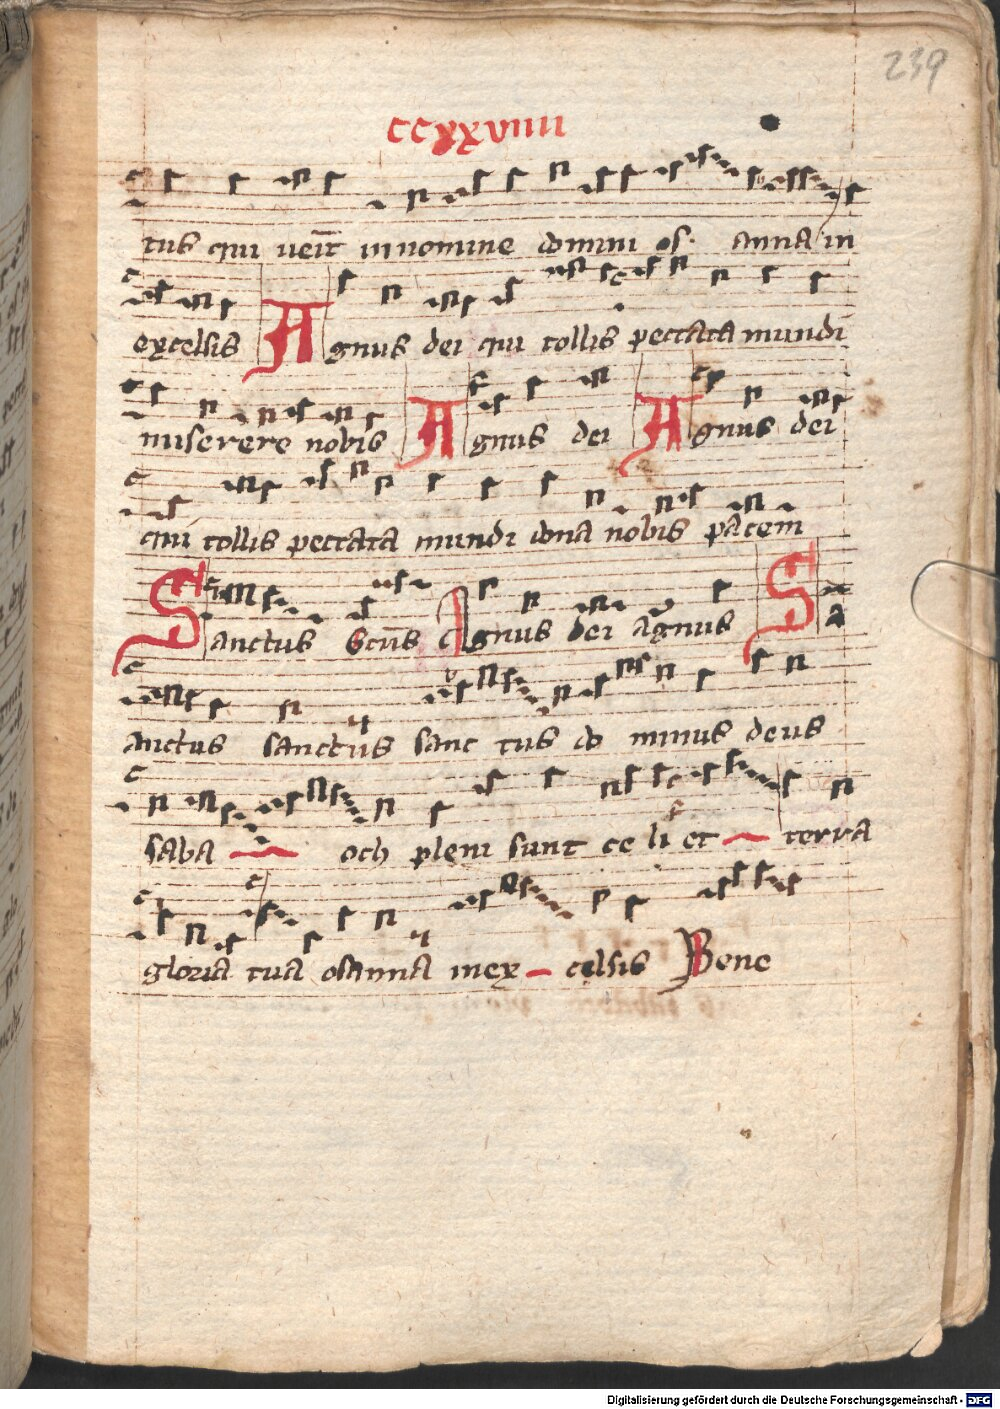 239
ccxxviiii
tus qui ueit in nomine domini os anna in
excelsis Agnus dei qui tollis peccata mundi
miserere nobis Agnus dei Agnus dei
qui tollis peccata mundi dona nobis pacem
Sanctus Scūs Agnus dei agnus Sa
anctus sanctus sanc tus do minus deus
saba och pleni sunt ce li et terra
gloria tua osanna in ex celsis Bene
Digitalisierung gefördert durch die Deutsche Forschungsgemeinschaft - DFG